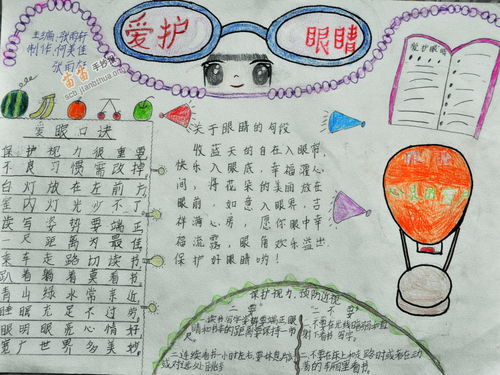 爱护
眼睛
主编:张雨轩
制作:何美佳
张雨
苗苗手抄报
scb.jianbihua.org
爱护眼睛
心灵的窗户
爱眼口诀
保护视力很重要
不良习惯需改掉
台灯放在左前方
室内灯光少不了
读写姿势要端正
一尺距离为最佳
乘车走路切读书
趴着躺着莫看书
青山绿水常亲近
睡眠充足不过劳
眼明眼亮心情好
宽广世界多美妙
关于眼睛的句段
收蓝天的自在入眼帘,
快乐入眼底,幸福灌心
间,将花朵的美丽放在
眼前,如意入眼界,吉
祥满心房,愿你眼中幸
福流露,眼角欢乐溢出
保护好眼睛哟!
保护视力、预防近视
二要
二不要
一.读书写字姿势要端正,眼
睛和书本的距离要保持一
尺。
二.连续看书一小时左右要休息片刻
或对远处眺
一.不要在光线
下看书写字。
二.不要在床上和走路时或者在动
荡的车厢里看书